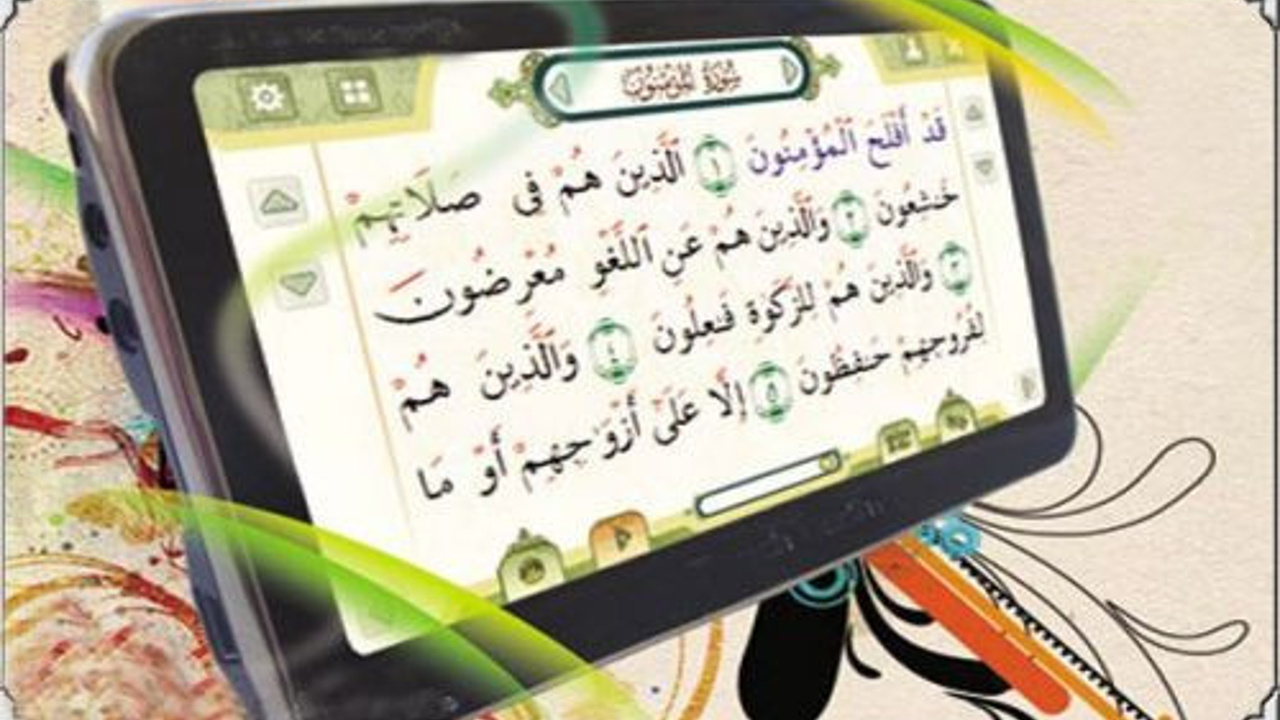 سُورَةُ المُؤْمِنُونَ
قَدْ أَفْلَحَ ٱلْمُؤْمِنُونَ ١ ٱلَّذِينَ هُمْ فِى صَلَاتِهِمْ
خَٰشِعُونَ ٢ وَٱلَّذِينَ هُمْ عَنِ ٱللَّغْوِ مُعْرِضُونَ
٣ وَٱلَّذِينَ هُمْ لِلزَّكَوٰةِ فَٰعِلُونَ ٤ وَٱلَّذِينَ هُمْ
لِفُرُوجِهِمْ حَٰفِظُونَ ٥ إِلَّا عَلَىٰٓ أَزْوَٰجِهِمْ أَوْ مَا